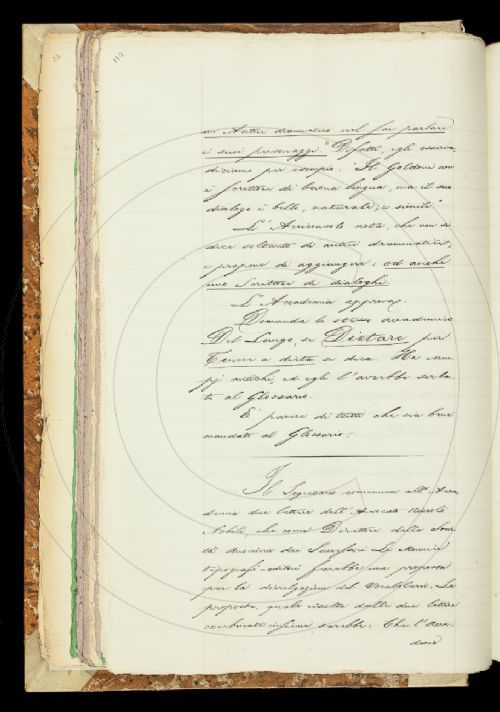 un Autore drammatico nel far parlare
i suoi personaggi" Difatti, egli osserva,
diciamo per esempio. "Il Goldoni non
è scrittore di buona lingua, ma il suo
dialogo è bello, naturale, e simili"
L'Arciconsolo nota, che non si
dice soltanto di autori drammatici,
e propone di aggiungere: od anche
uno scrittore di dialoghi.
L'Accademia approva.
Domanda lo stesso accademico
Del Lungo, se Dietare per
Tenere a dieta si dica. Ha esem-
pj antichi, ed egli l'avrebbe serba-
to al Glossario.
È parere di tutti che sia ben
mandato al Glossario.
Il Segretario comunica all'Acca-
demia due lettere dell'Avvocato
Nobili, che come Direttore della Socie-
tà dei Successori Le Monnier
tipografi-editori farebbe una proposta
per la divulgazione del Vocabolario. La
proposta, quale risulta dalle due lettere
insieme, sarebbe: Che l'Acca-
demia